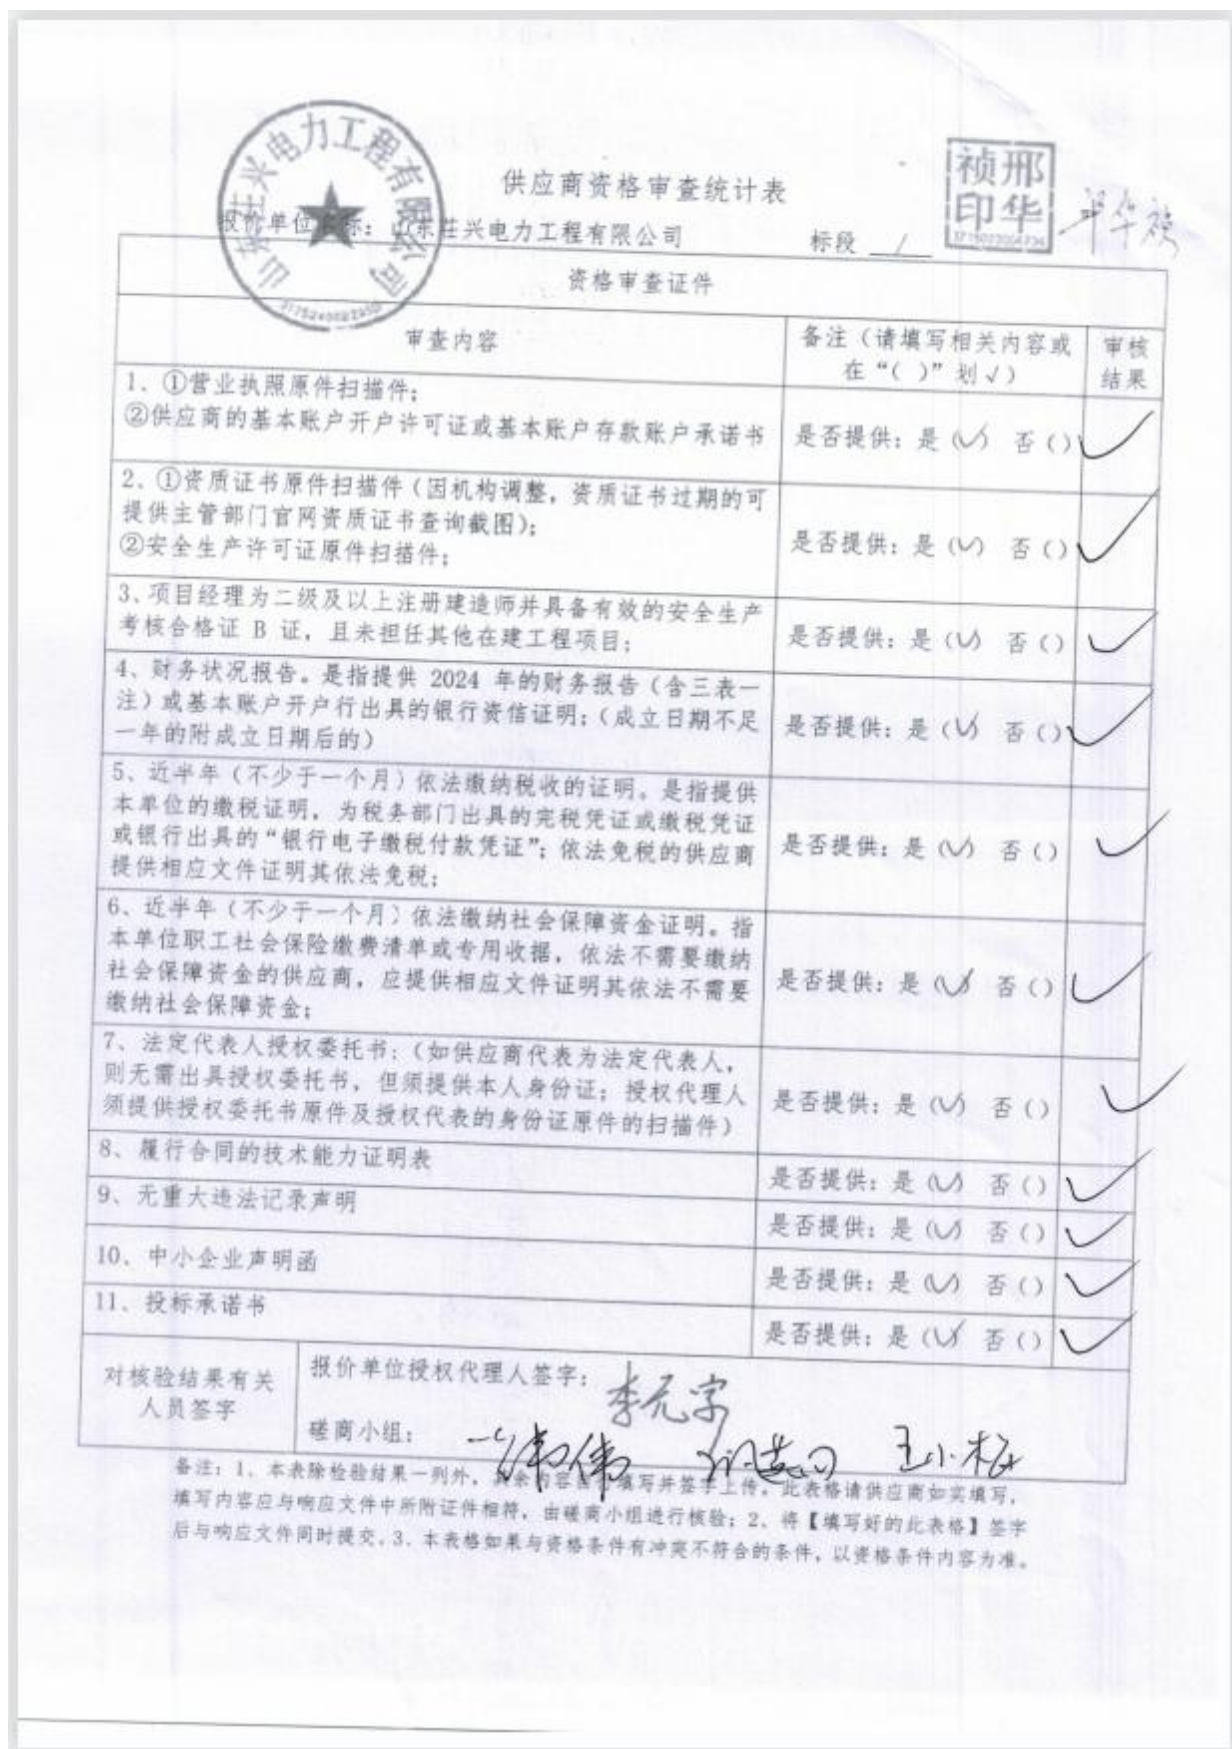 山东茌兴电力工程有限公司
供应商资格审查统计表
祯邢
印华
报价单位名称：山东茌兴电力工程有限公司 标段 /
资格审查证件
审查内容
备注（请填写相关内容或
在“（ ）”划√）
审核
结果
1、①营业执照原件扫描件；
②供应商的基本账户开户许可证或基本账户存款账户承诺书
是否提供：是（√） 否（） √
2、①资质证书原件扫描件（因机构调整，资质证书过期的可
提供主管部门官网资质证书查询截图）；
②安全生产许可证原件扫描件；
是否提供：是（√） 否（） √
3、项目经理为二级及以上注册建造师并具备有效的安全生产
考核合格证 B 证，且未担任其他在建工程项目；
是否提供：是（√） 否（） √
4、财务状况报告。是指提供 2024 年的财务报告（含三表一
注）或基本账户开户行出具的银行资信证明；（成立日期不足
一年的附成立日期后的）
是否提供：是（√） 否（） √
5、近半年（不少于一个月）依法缴纳税收的证明。是指提供
本单位的缴税证明，为税务部门出具的完税凭证或缴税凭证
或银行出具的“银行电子缴税付款凭证”；依法免税的供应商
提供相应文件证明其依法免税；
是否提供：是（√） 否（） √
6、近半年（不少于一个月）依法缴纳社会保障资金证明。指
本单位职工社会保险缴费清单或专用收据，依法不需要缴纳
社会保障资金的供应商，应提供相应文件证明其依法不需要
缴纳社会保障资金；
是否提供：是（√） 否（） √
7、法定代表人授权委托书；（如供应商代表为法定代表人，
则无需出具授权委托书，但须提供本人身份证；授权代理人
须提供授权委托书原件及授权代表的身份证原件的扫描件）
是否提供：是（√） 否（） √
8、履行合同的技术能力证明表
是否提供：是（√） 否（） √
9、无重大违法记录声明
是否提供：是（√） 否（） √
10、中小企业声明函
是否提供：是（√） 否（） √
11、投标承诺书
是否提供：是（√） 否（） √
对核验结果有关
人员签字
报价单位授权代理人签字：李元字
磋商小组： 王小梅
备注：1、本表除检验结果一列外，其余内容填写并签字上传，此表格请供应商如实填写，
填写内容应与响应文件中所附证件相符，由磋商小组进行核验；2、将【填写好的此表格】签字
后与响应文件同时提交。3、本表格如果与资格条件有冲突不符合的条件，以资格条件内容为准。